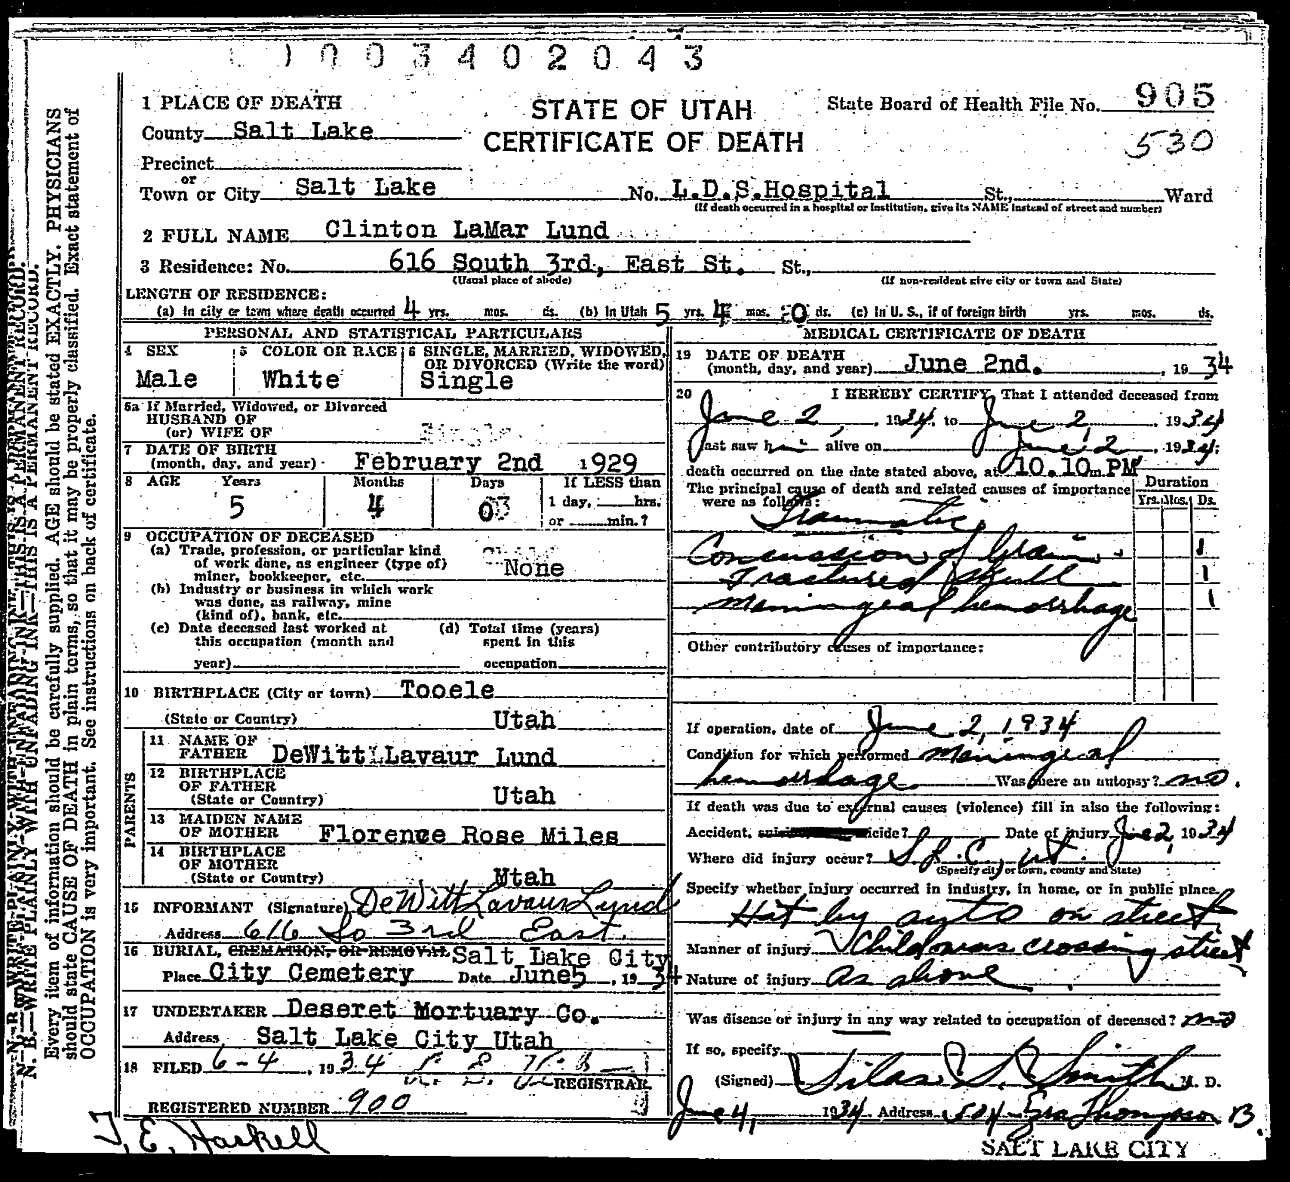 1003402043
1 PLACE OF DEATH
STATE OF UTAH
CERTIFICATE OF DEATH
State Board of Health File No. 905
530
County Salt Lake
Precinct
or
Town or City Salt Lake No. L.D.S.Hospital St., Ward
(If death occurred in a hospital or institution, give its NAME instead of street and number)
2 FULL NAME Clinton LaMar Lund
3 Residence: No. 616 South 3rd, East St. St.,
(Usual place of abode) (If non-resident give city or town and State)
LENGTH OF RESIDENCE:
(a) In city or town where death occurred 4 yrs. mos. ds. (b) In Utah 5 yrs. 4 mos. 0 ds. (c) In U. S., if of foreign birth yrs. mos. ds.
PERSONAL AND STATISTICAL PARTICULARS
4 SEX Male
5 COLOR OR RACE White
6 SINGLE, MARRIED, WIDOWED, OR DIVORCED (Write the word) Single
5a If Married, Widowed, or Divorced
HUSBAND OF
(or) WIFE OF Single
7 DATE OF BIRTH
(month, day, and year) February 2nd 1929
8 AGE Years Months Days If LESS than
5 4 0 1 day, hrs.
or min.?
9 OCCUPATION OF DECEASED
(a) Trade, profession, or particular kind
of work done, as engineer (type of)
miner, bookkeeper, etc. None
(b) Industry or business in which work
was done, as railway, mine
(kind of), bank, etc.
(c) Date deceased last worked at
this occupation (month and
year)
(d) Total time (years)
spent in this
occupation
10 BIRTHPLACE (City or town) Tooele
(State or Country) Utah
PARENTS
11 NAME OF
FATHER DeWitt LLavaur Lund
12 BIRTHPLACE
OF FATHER
(State or Country) Utah
13 MAIDEN NAME
OF MOTHER Florence Rose Miles
14 BIRTHPLACE
OF MOTHER
(State or Country) Utah
15 INFORMANT (Signature) DeWitt Lavaur Lund
Address 616 So 3rd East.
16 BURIAL, CREMATION, OR REMOVAL Salt Lake City
Place City Cemetery Date June5, 1934
17 UNDERTAKER Deseret Mortuary Co.
Address Salt Lake City Utah
18 FILED 6-4, 1934
REGISTRAR
REGISTERED NUMBER 900
T. E. Haskell
MEDICAL CERTIFICATE OF DEATH
19 DATE OF DEATH
(month, day, and year) June 2nd. , 1934
20 I HEREBY CERTIFY, That I attended deceased from
June 2, 1934, to June 2, 1934
last saw him alive on June 2, 1934;
death occurred on the date stated above, at 10.10 m. PM
The principal cause of death and related causes of importance
were as follows:
Duration
Yrs. Mos. Ds.
Traumatic
Concussion of brain 1
Fractured Skull 1
Meningeal hemorrhage 1
Other contributory causes of importance:
If operation, date of June 2, 1934
Condition for which performed Meningeal
hemorrhage. Was there an autopsy? no.
If death was due to external causes (violence) fill in also the following:
Accident, suicide? Date of injury June 2, 1934
Where did injury occur? S. L. C., Ut.
(Specify city or town, county and State)
Specify whether injury occurred in industry, in home, or in public place.
Hit by auto on street
Manner of injury Child was crossing street
Nature of injury As above.
Was disease or injury in any way related to occupation of deceased? no
If so, specify
(Signed) Silas S. Smith M. D.
June 4, 1934 Address 504 Ezra Thompson B.
SALT LAKE CITY
N. B.—WRITE PLAINLY WITH UNFADING INK—THIS IS A PERMANENT RECORD.
Every item of information should be carefully supplied. AGE should be stated EXACTLY. PHYSICIANS
should state CAUSE OF DEATH in plain terms, so that it may be properly classified. Exact statement of
OCCUPATION is very important. See instructions on back of certificate.